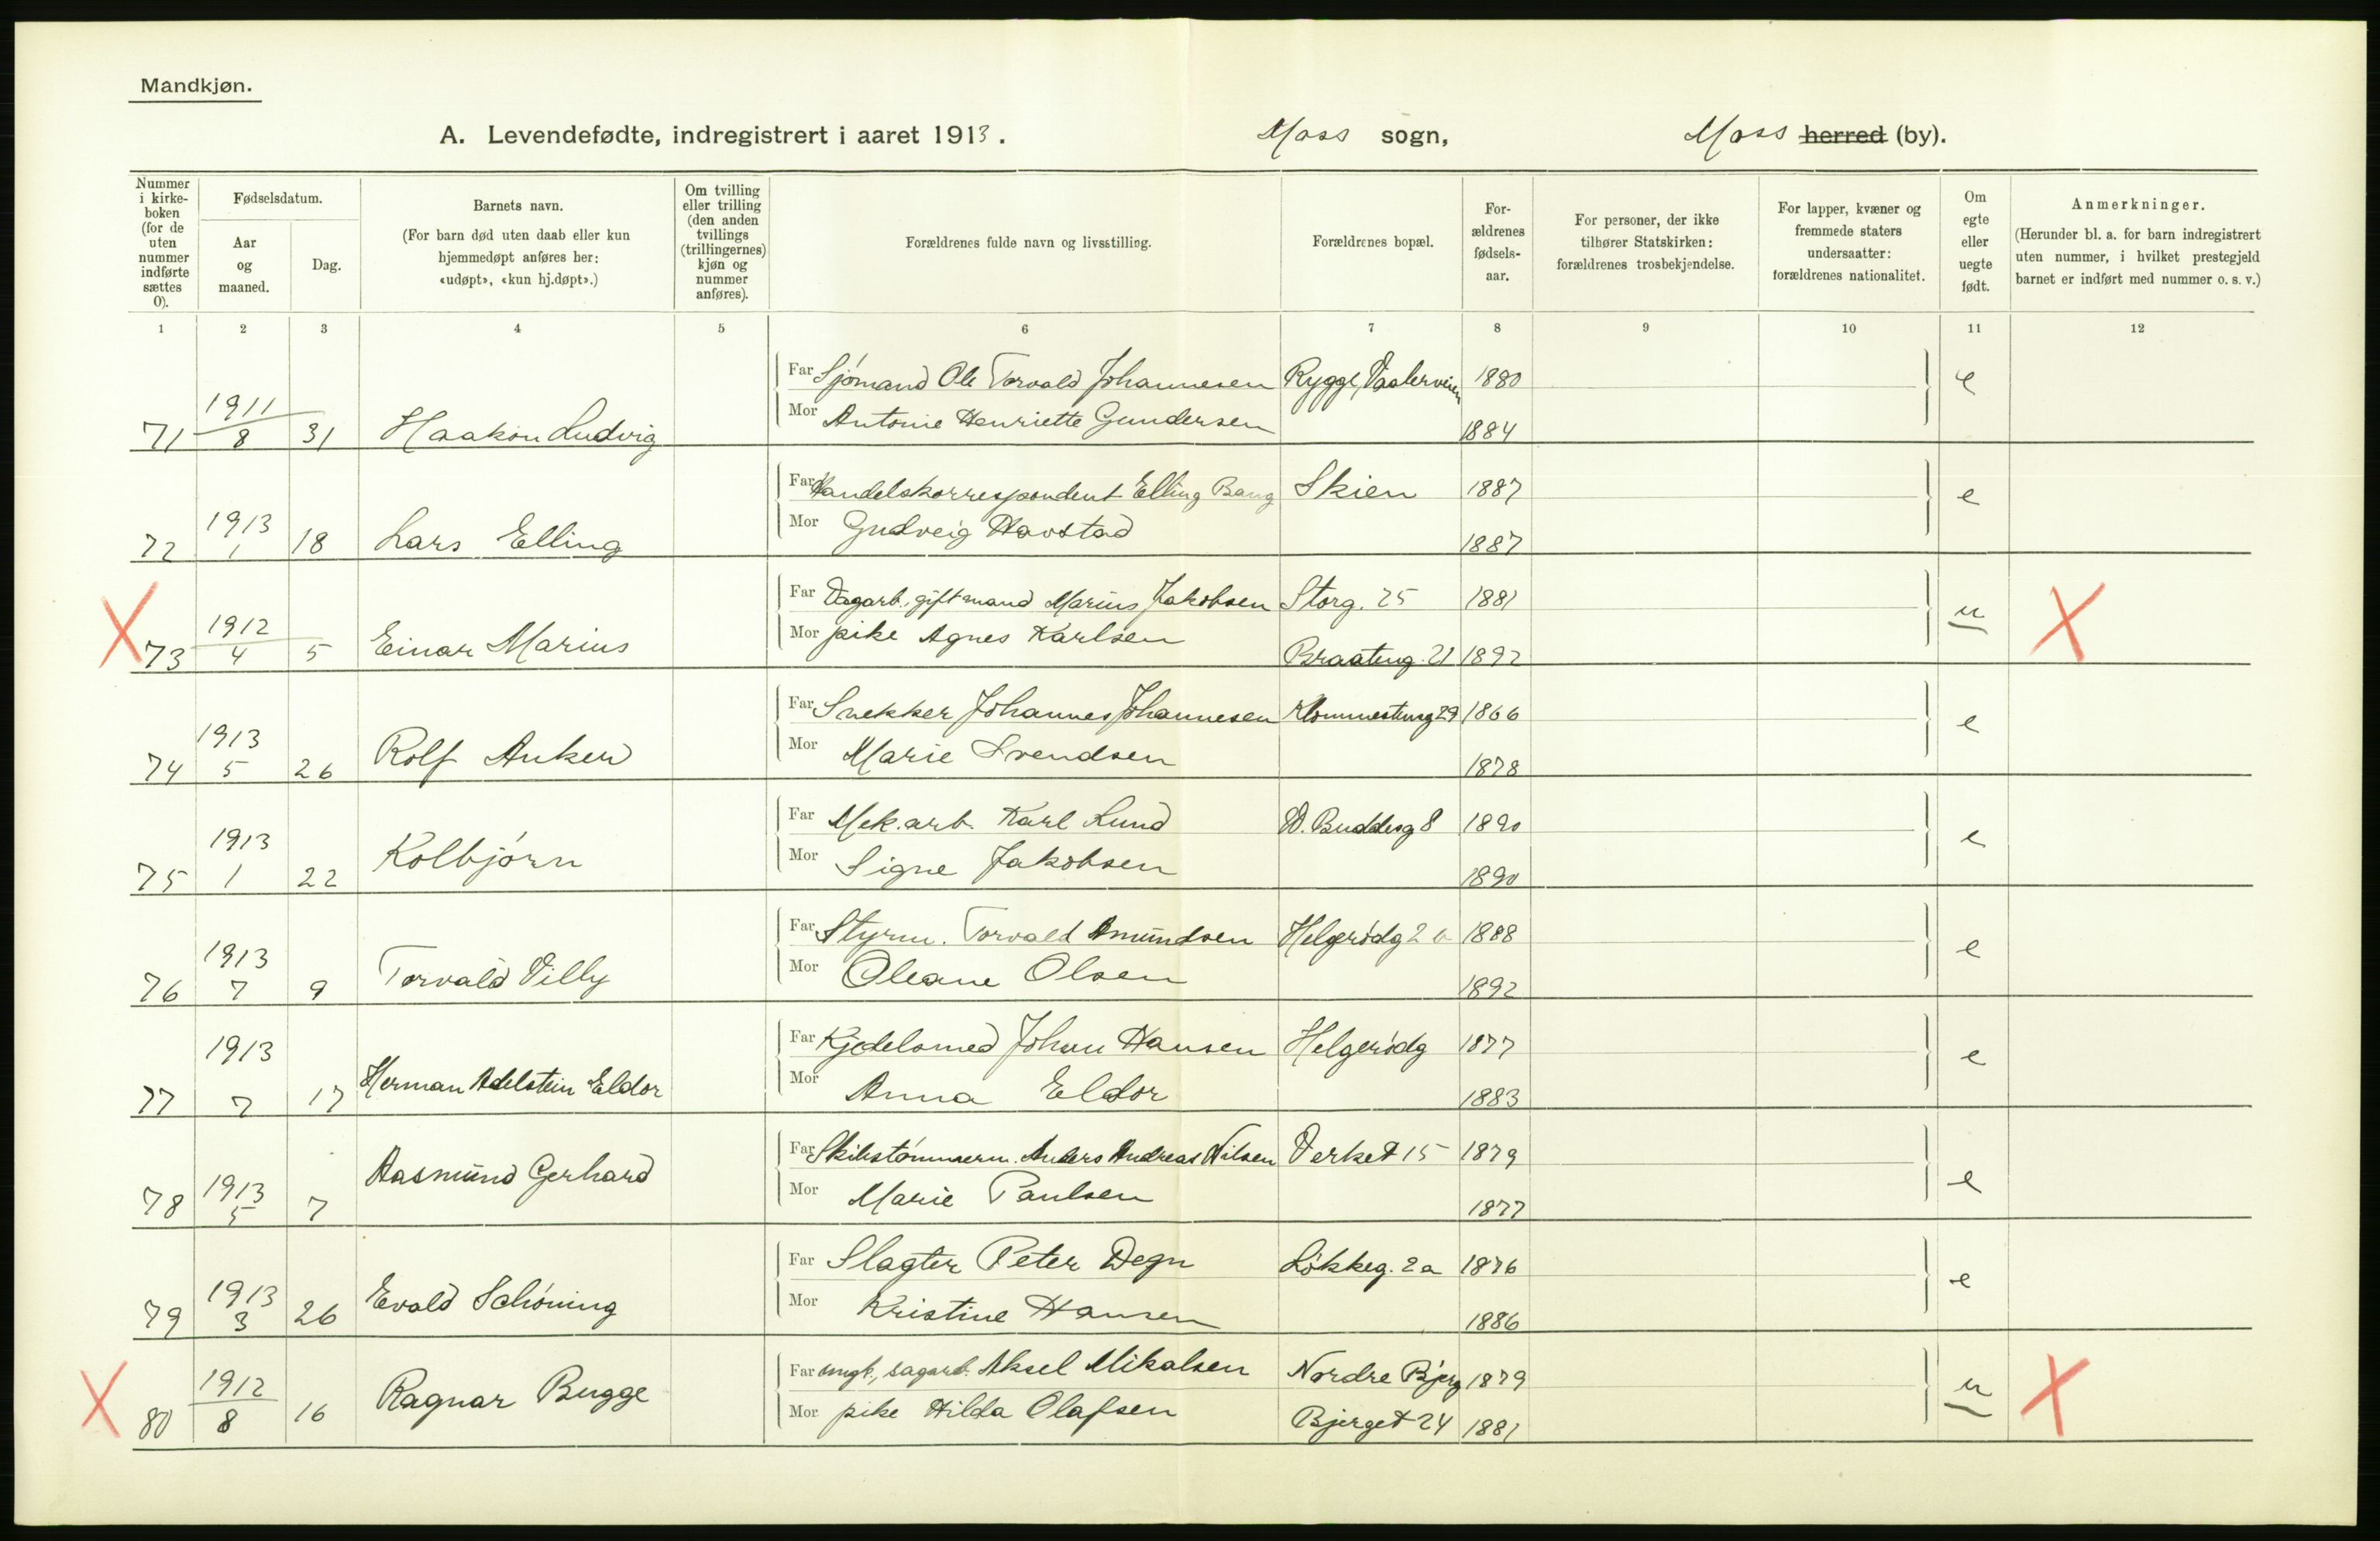 Mandkjøn.
A. Levendefødte, indregistrert i aaret 1913. Moss sogn, Moss herred (by).
Nummer i kirke-boken (for de uten nummer indførte sættes 0).
Fødselsdatum.
Aar og maaned.
Dag.
Barnets navn.
(For barn død uten daab eller kun hjemmedøpt anføres her: «udøpt», «kun hj.døpt».)
Om tvilling eller trilling (den anden tvillings (trillingernes) kjøn og nummer anføres).
Forældrenes fulde navn og livsstilling.
Forældrenes bopæl.
For-ældrenes fødsels-aar.
For personer, der ikke tilhører Statskirken: forældrenes trosbekjendelse.
For lapper, kvæner og fremmede staters undersaatter: forældrenes nationalitet.
Om egte eller uegte født.
Anmerkninger.
(Herunder bl. a. for barn indregistrert uten nummer, i hvilket prestegjeld barnet er indført med nummer o. s. v.)
1 2 3 4 5 6 7 8 9 10 11 12
71 1911/8 31 Haakon Ludvig Far Sjømand Ole Torvald Johannesen Rygge, Vaalerveien 1880 e
Mor Antonie Henriette Gundersen 1884
72 1913 1 18 Lars Elling Far Handelskorrespondent Elling Bang Skien 1887 e
Mor Gudveig Havstad 1887
X 73 1912/4 5 Einar Marius Far Dagarb., gift mand Marius Jakobsen Storg. 25 1881 u X
Mor pike Agnes Karlsen Braateng. 21 1892
74 1913 5 26 Rolf Anker Far Snekker Johannes Johannesen 1866 e
Mor Marie Svendsen 1878
75 1913 1 22 Kolbjørn Far Mek.arb. Karl Lund D. Buddesg 8 1890 e
Mor Signe Jakobsen 1890
76 1913 7 9 Torvald Villy Far Styrm. Torvald Amundsen Helgerødg 2 b 1888 e
Mor Oleane Olsen 1892
77 1913 7 17 Herman Adelstein Eldor Far Kjedelsmed Johan Hansen Helgerødg 1877 e
Mor Anna Eldor 1883
78 1913 5 7 Aasmund Gerhard Far Skibstømmerm. Anders Andreas Nilsen Verket 15 1879 e
Mor Marie Paulsen 1877
79 1913 3 26 Evald Schöning Far Slagter Peter Degn Løkkeg. 2a 1876 e
Mor Kristine Hansen 1886
X 80 1912/8 16 Ragnar Bugge Far ungk., sagarb. Aksel Mikalsen Nordre Bjerg 1879 u X
Mor pike Hilda Olafsen Bjerget 24 1881